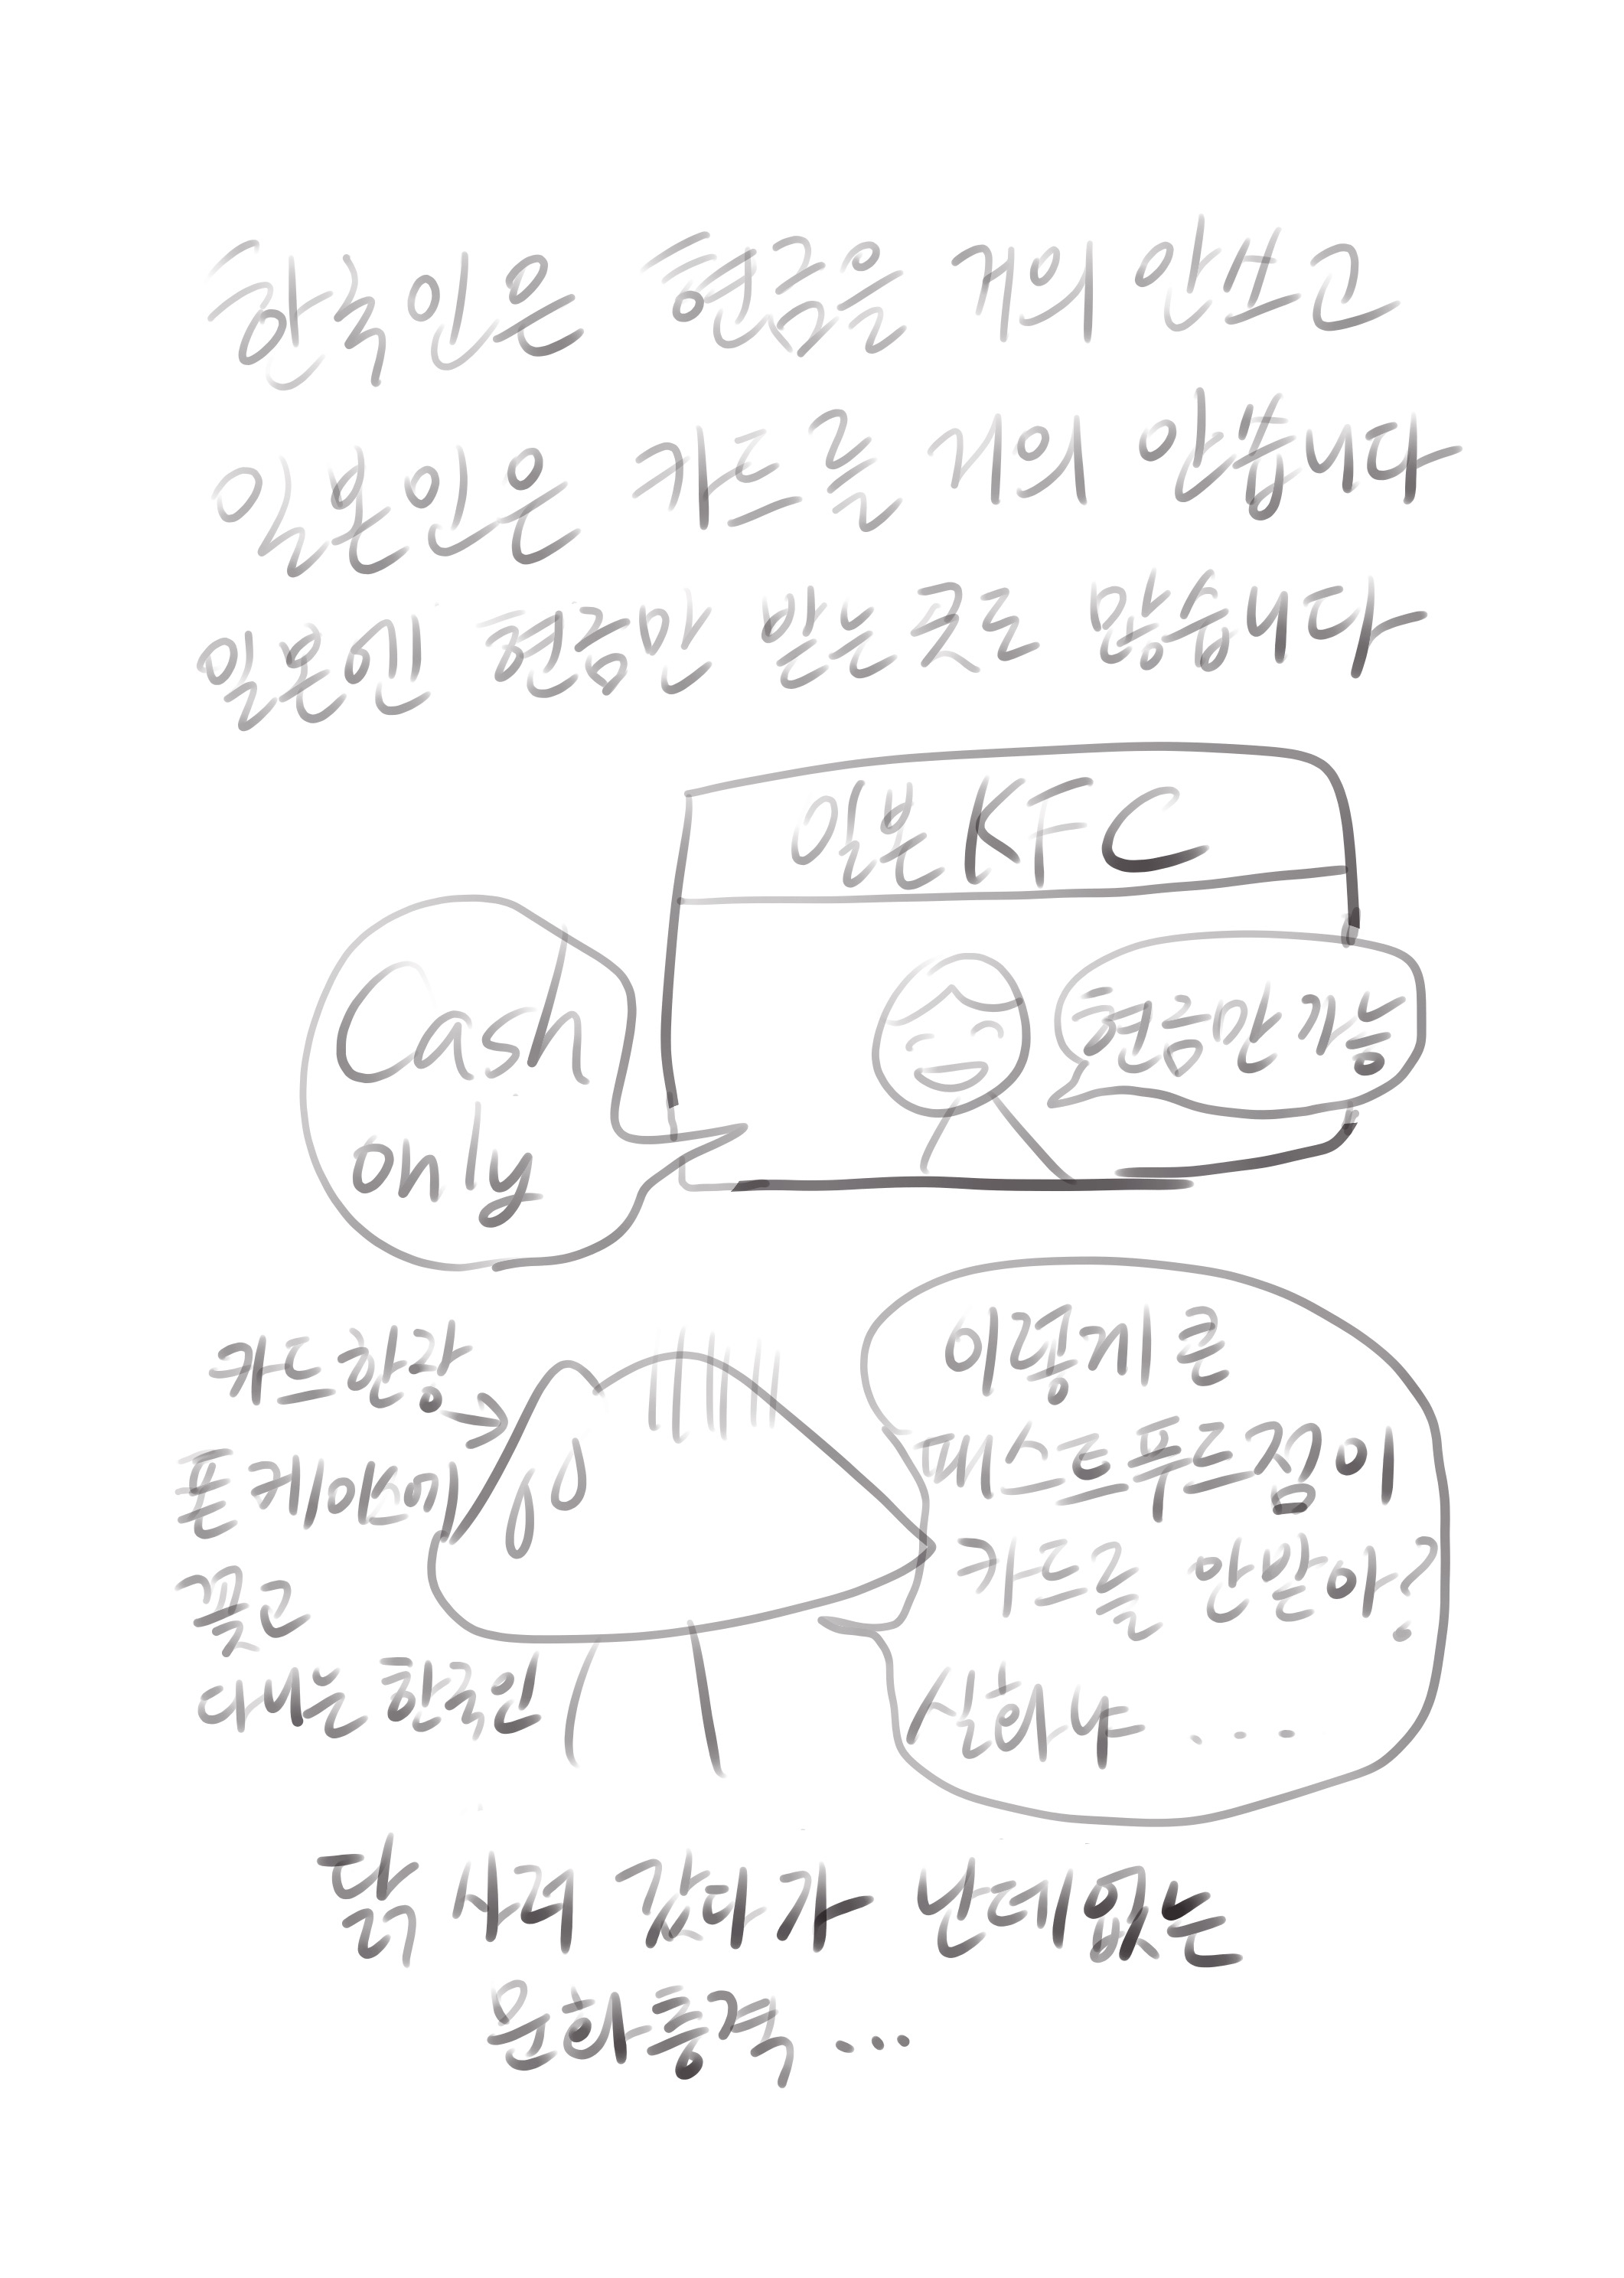 한국인은 현금을 거의 안쓰고
일본인은 카드를 거의 안씁니다
일본엔 현금만 받는 곳도 많습니다
일본 KFC
Cash
only
현금만 가능
카드 한장
폰 케이스에
꽂고
다니는 한국인
이름께나
패스트푸드점이
카드를 안받아?
실화냐 ...
닭 시켜 갔다가 난데없는
문화충격 ...